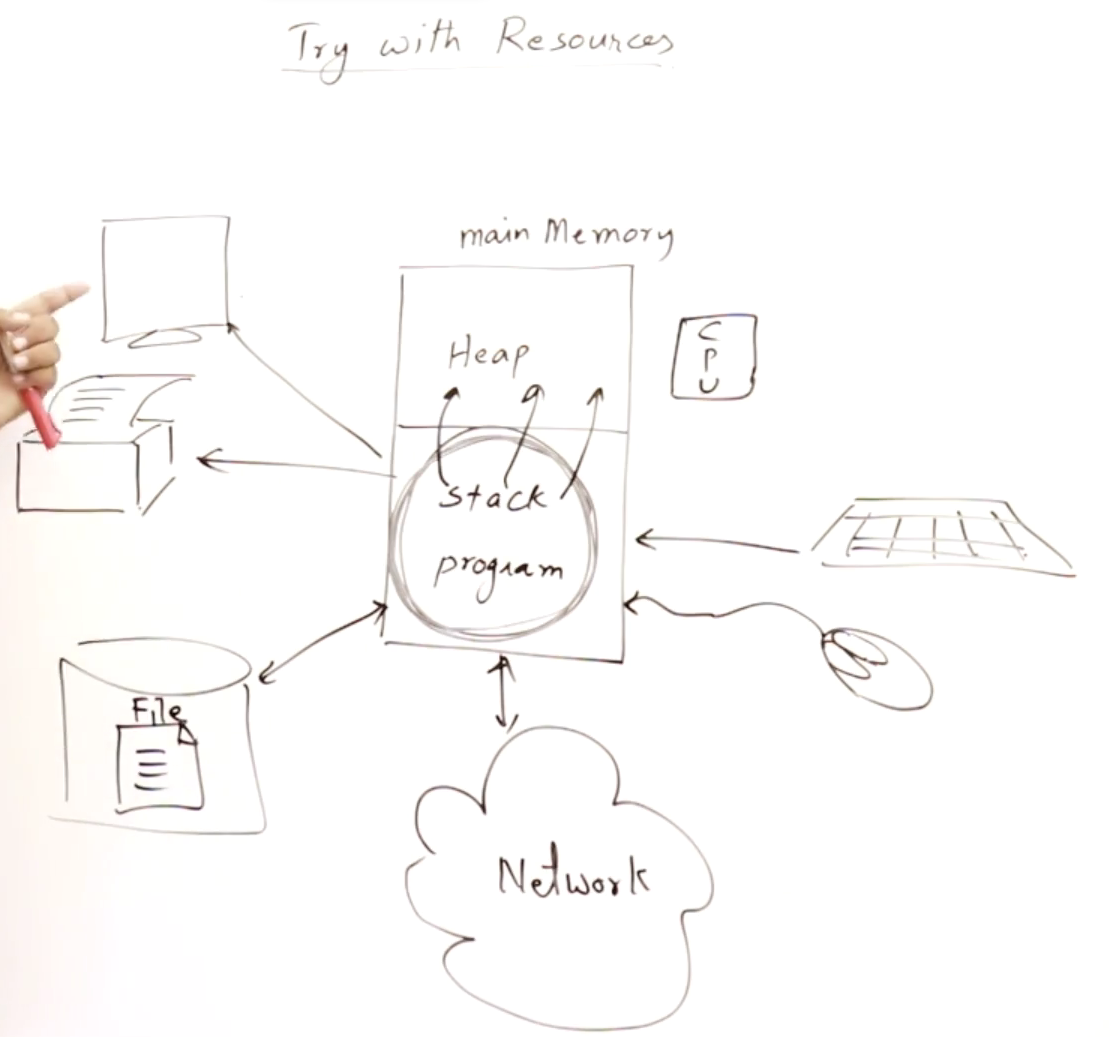 Try with Resources
main Memory
Heap
CPU
stack
program
File
Network